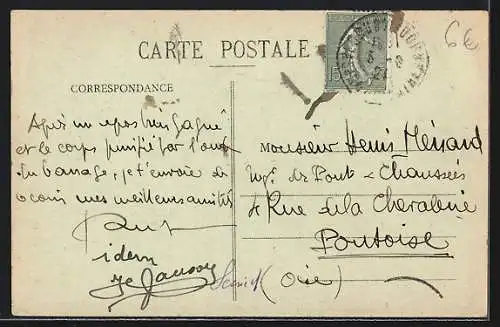 CARTE POSTALE
6€
15
CORRESPONDANCE
Après un repos bien gagné
et le corps purifié par l'eau
du barrage, je t'envoie de
mes meilleures amitiés
Paul
idem
Monsieur Henri Ménard
Ing. des Ponts & Chaussées
4 Rue de la Chevalerie
Pontoise
(Oise)